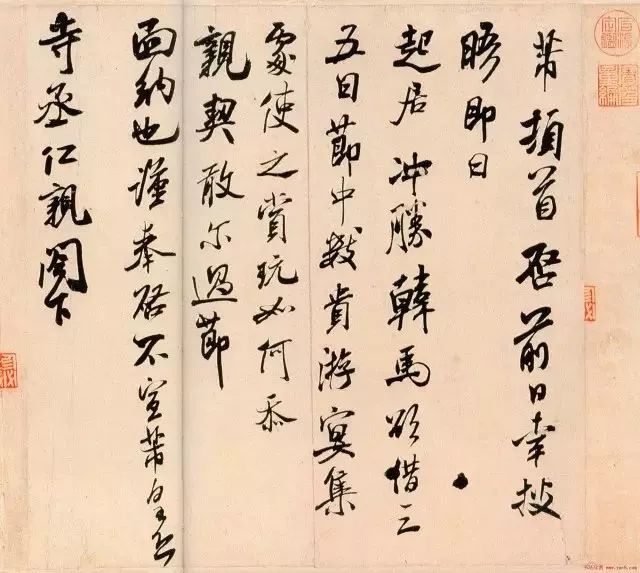 芾頓首啓前日幸披
晤即日
起居沖勝韓馬欲借三
五日節中数貴游宴集
處使之賞玩如何忝
親契敢尔過節
面納也謹奉啓不宣芾皇恐
寺丞仁親閣下